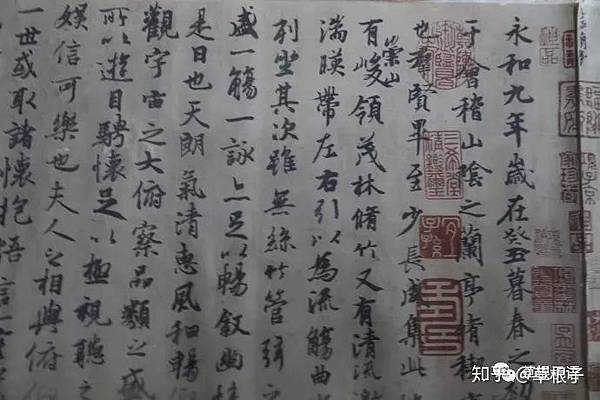 永和九年歲在癸丑暮春之初
于會稽山陰之蘭亭脩稧
也羣賢畢至少長咸集此
崇山
有峻領茂林脩竹又有清流激
湍暎帶左右引以為流觴曲
列坐其次雖無絲竹管弦
盛一觴一詠亦足以暢敘幽情
是日也天朗氣清惠風和暢
觀宇宙之大俯察品類之盛
所以遊目騁懷足以極視聽之
娛信可樂也夫人之相與俯仰
一世或取諸懷抱悟言一
知乎